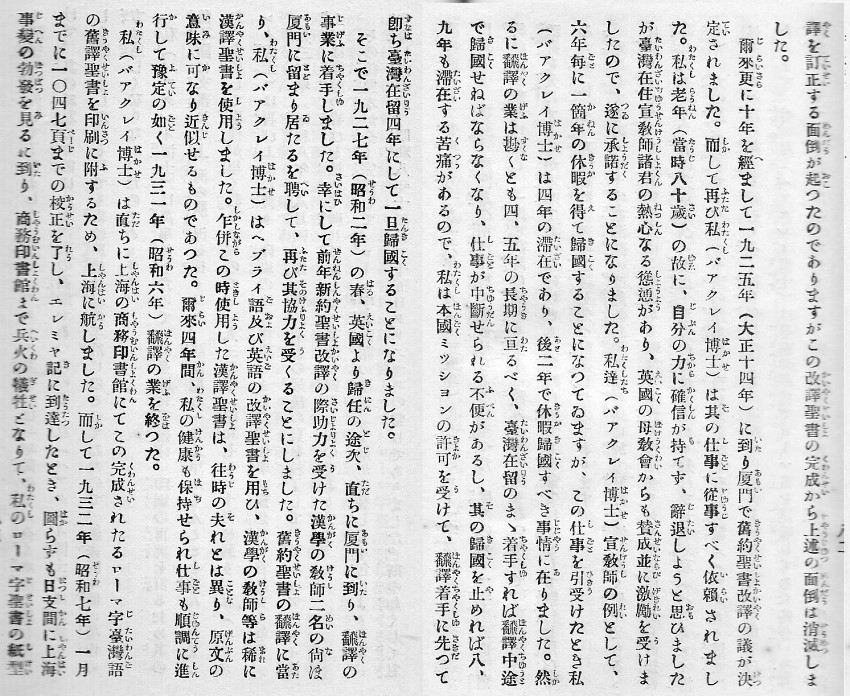 譯を訂正する面倒が起つたのでありますがこの改譯聖書の完成から上述の面倒は消滅しま
した。
爾來更に十年を經まして一九二五年（大正十四年）に到り厦門で舊約聖書改譯の議が決
定されました。而して再び私（バアクレイ博士）は其の仕事に從事すべく依賴されまし
た。私は老年（當時八十歳）の故に、自分の力に確信が持てず、辭退しようと思ひました
が臺灣在住宣敎師諸君の熱心なる慫慂があり、英國の母敎會からも賛成並に激勵を受けま
したので、遂に承諾することになりました。私達（バアクレイ博士）宣敎師の例として、
六年每に一箇年の休暇を得て歸國することになつてゐますが、この仕事を引受けたとき私
（バアクレイ博士）は四年の滯在であり、後二年で休暇歸國すべき事情に在りました。然
るに飜譯の業は尠くとも四、五年の長期に亘るべく、臺灣在留のまゝ着手すれば飜譯中途
で歸國せねばならなくなり、仕事が中斷せられる不便があるし、其の歸國を止めれば八、
九年も滯在する苦痛があるので、私は本國ミッションの許可を受けて、飜譯着手に先つて
卽ち臺灣在留四年にして一旦歸國することになりました。
そこで一九二七年（昭和二年）の春、英國より歸任の途次、直ちに厦門に到り、飜譯の
事業に着手しました。幸にして前年新約聖書改譯の際助力を受けた漢學の敎師二名の尙ほ
厦門に留まり居たるを聘して、再び其協力を受くることにしました。舊約聖書の飜譯に當
り、私（バアクレイ博士）はヘブライ語及び英語の改譯聖書を用ひ、漢學の敎師等は稀に
漢譯聖書を使用しました。乍併この時使用した漢譯聖書は、往時の夫れとは異り、原文の
意味に可なり近似せるものであつた。爾來四年間、私の健康も保持せられ仕事も順調に進
行して豫定の如く一九三一年（昭和六年）飜譯の業を終つた。
私（バアクレイ博士）は直ちに上海の商務印書館にてこの完成されたるローマ字臺灣語
の舊譯聖書を印刷に附するため、上海に航しました。而して一九三二年（昭和七年）一月
までに一〇四七頁までの校正を了し、エレミヤ記に到達したとき、圖らずも日支間に上海
事變の勃發を見るに到り、商務印書館まで兵火の犧牲となりて、私のローマ字聖書の紙型